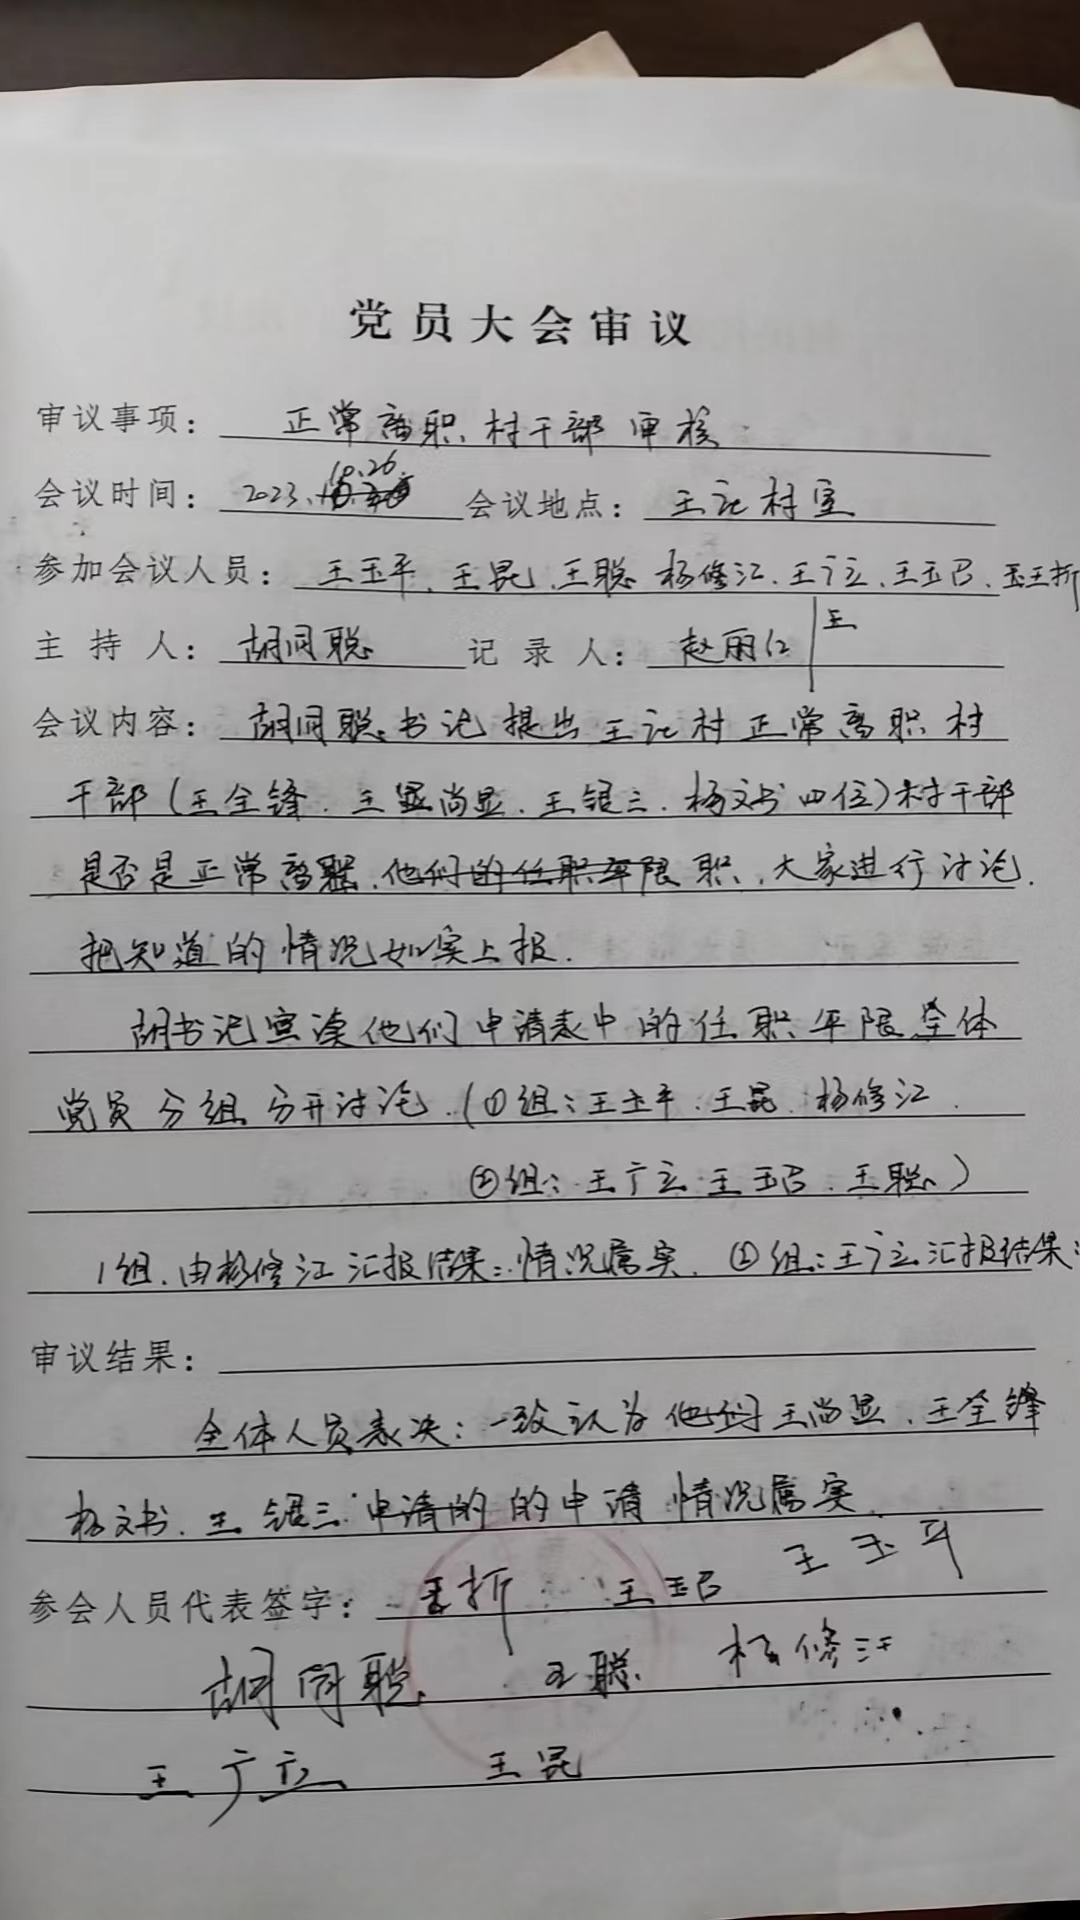 党员大会审议
审议事项： 正常离职村干部审核
会议时间： 2023.10.26 会议地点： 王讫村室
参加会议人员： 王玉平、王昆、王聪、杨修江、王广立、王玉玿、王折
主持人： 胡同聪 记录人： 赵丽红 王
会议内容： 胡同聪书记提出王讫村正常离职村
干部（王全锋、王尚显、王银三、杨文书四位）村干部
是否是正常离职，大家进行讨论，
把知道的情况如实上报．
胡书记宣读他们申请表中的任职年限全体
党员分组分开讨论．（①组：王玉平、王昆、杨修江．
②组：王广立、王玉玿、王聪）
1组．由杨修江汇报结果：情况属实．②组：王广立汇报结果：
审议结果：
全体人员表决：一致认为王尚显、王全锋
杨文书、王银三的申请情况属实．
参会人员代表签字： 王折 王玉玿 王玉平
胡同聪 王聪 杨修江
王广立 王昆